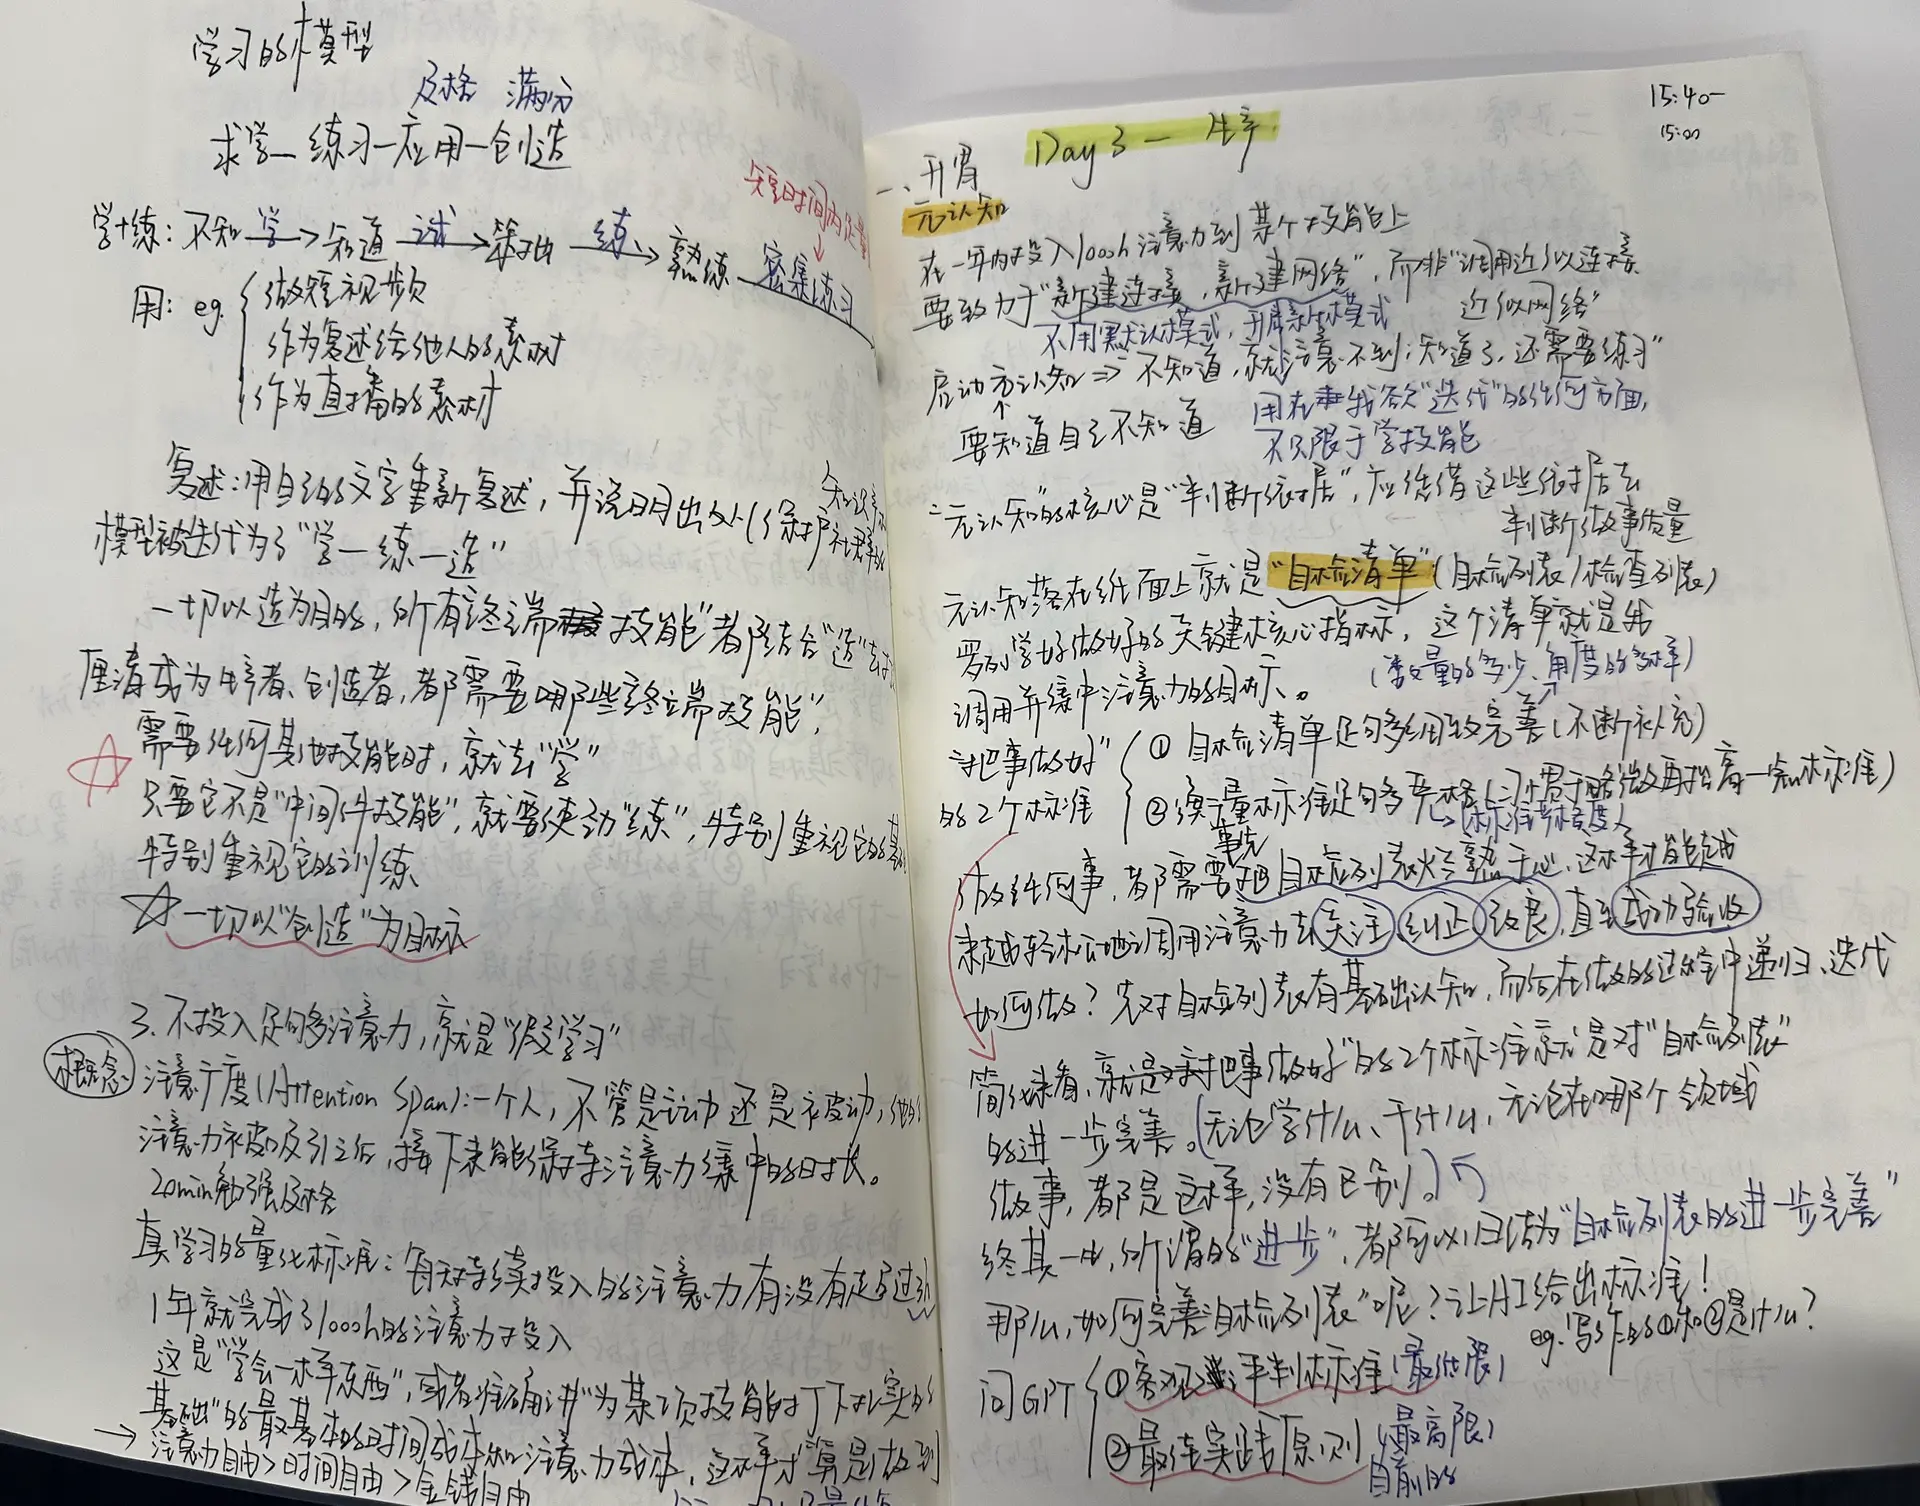 学习的模型
及格 满分
求学—练习—应用—创造
短时间内足量
学+练：不知 学→ 知道 试→ 笨拙 练→ 熟练 密集练习
用：eg. 做短视频
作为复述给他人的素材
作为直播的素材
复述：用自己的文字重新复述，并说明出处（保护知识产
模型被迭代为了“学—练—造”
一切以造为目的，所有终端技能都结合“造”去
厘清成为生产者、创造者，都需要哪些终端技能”，
需要任何其他技能时，就去“学”
只要它不是“中间件技能”，就要使劲“练”，特别重视它的基
特别重视它的训练
一切以“创造”为目标
3. 不投入足够多注意力，就是“假学习”
概念 注意广度（Attention Span）：一个人，不管是主动还是被动，他的
注意力被吸引之后，接下来能保持注意力集中的时长。
20min勉强及格
真学习的量化标准：每天持续投入的注意力有没有足够过
1年就完成了1000h的注意力投入
这是“学会一样东西”，或者准确讲“为某项技能打下扎实的
基础”的最基本的时间成本和注意力成本，这样才“算是做到
→ 注意力自由>时间自由>金钱自由
15:40-
15:00
Day 3 — 生产
一、开胃
元认知
在一年内投入1000h注意力到某个技能上
要致力于“新建连接，新建网络”，而非“调用近似连接
近似网络”
不用默认模式，开启新生模式
启动元认知⇒“不知道，就注意不到；知道了，还需要练习”
要知道自己不知道
用在我欲“迭代”的任何方面，
不只限于学技能
“元认知”的核心是“判断依据”，应凭借这些依据去
判断做事质量
元认知落在纸面上就是“自检清单”（自检列表/检查列表）
罗列学好做好的关键核心指标，这个清单就是我
调用并集中注意力的目标。
（数量的多少、角度的多样）
“把事做好”
的2个标准
① 自检清单足够多细致完善（不断补充）
② 衡量标准足够多严格（习惯于略微再抬高一点标准）
标准严格度
做任何事，都需要事先把自检列表烂熟于心，这样才能越
来越轻松地调用注意力去关注 纠正 改良，直至成功验收
如何做？先对自检列表有基础认知，而后在做的过程中递归、迭代
简化来看，就是对“把事做好”的2个标准就是对“自检列表”
的进一步完善。（无论学什么、干什么，无论在哪个领域
做事，都是这样，没有区别。）
终其一生，所谓的“进步”，都可以归结为“自检列表的进一步完善”
那么，如何完善“自检列表”呢？让AI给出标准！
eg. 写作的①和②是什么？
问GPT ①客观评判标准（最低限）
②最佳实践原则（最高限）
目前的